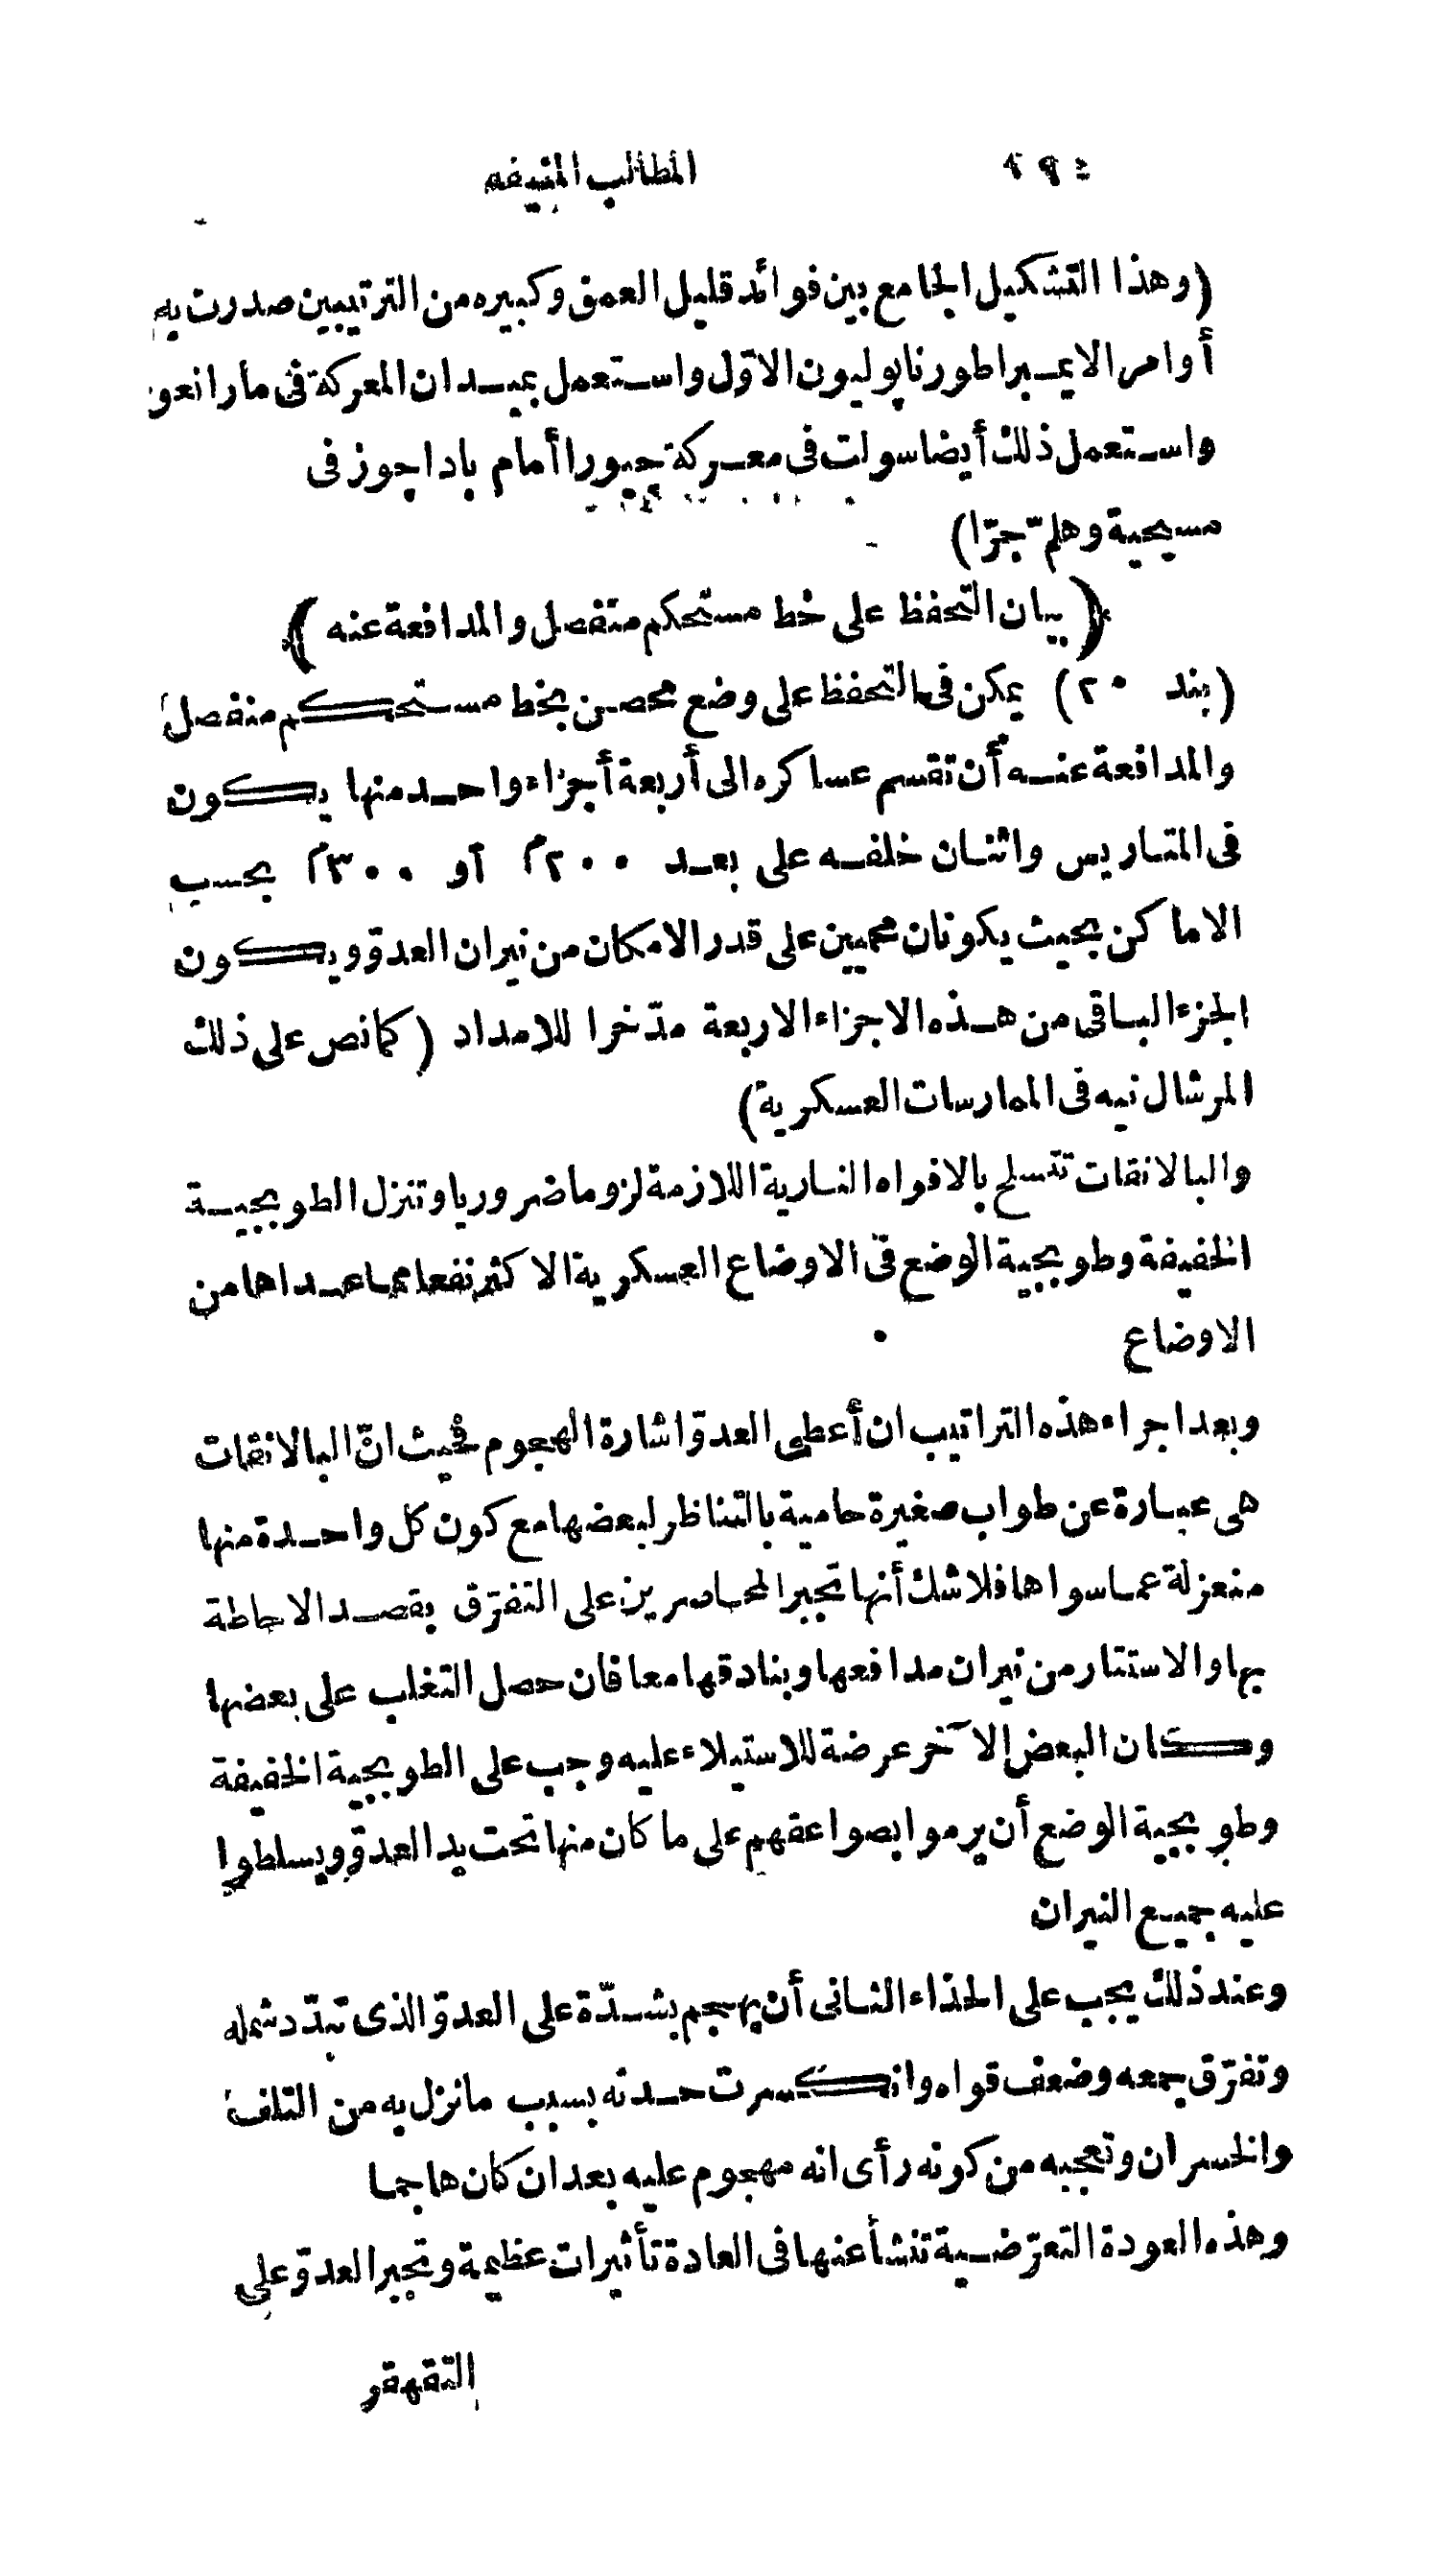 ٢٩٤ المطالب المنيفه
(وهذا التشكيل الجامع بين فوائد قليل العمق وكبيره من الترتيبين صدرت به
أوامر الايمبراطور ناپوليون الاوّل واستعمل بميدان المعركة فى مارانعو
واستعمل ذلك أيضا سولت فى معركة جيورا أمام باداجوز فى
مسيحية وهلمّ جرّا)
﴿بيان التحفظ على خط مستحكم منفصل والمدافعة عنه﴾
(بند ٢٠) يمكن فى التحفظ على وضع محصن بخط مستحكم منفصل
والمدافعة عنه أن تقسم عساكره الى أربعة أجزاء واحد منها يكون
فى المتاريس واثنان خلفه على بعد ٢٠٠م أو ٣٠٠م بحسب
الاماكن بحيث يكونان محميين على قدر الامكان من نيران العدوّ ويكون
الجزء الباقى من هذه الاجزاء الاربعة مدّخرا للامداد (كمانص على ذلك
المرشال نيه فى الممارسات العسكرية)
والبالانقات تتسلح بالافواه النارية اللازمة لزوما ضروريا وتنزل الطوبجية
الخفيفة وطوبجية الوضع فى الاوضاع العسكرية الاكثر نفعا مما عداها من
الاوضاع
وبعد اجراء هذه التراتيب ان أعطى العدوّ اشارة الهجوم فحيث انّ البالانقات
هى عبارة عن طواب صغيرة حامية بالتناظر لبعضها مع كون كل واحدة منها
منعزلة عما سواها فلا شك أنها تجبر المحاصرين على التفرّق بقصد الاحاطة
بها والاستتار من نيران مدافعها وبنادقها معا فان حصل التغلب على بعضها
وكان البعض الآخر عرضة للاستيلاء عليه وجب على الطوبجية الخفيفة
وطوبجية الوضع أن يرموا بصواعقهم على ما كان منها تحت يد العدوّ ويسلطوا
عليه جميع النيران
وعند ذلك يجب على الحذاء الثانى أن يهجم بشدّة على العدوّ الذى تبدّد شمله
وتفرّق جمعه وضعف قواه وانكسرت حدته بسبب مانزل به من التلف
والخسران وتعجبه من كونه رأى انه مهجوم عليه بعد ان كان هاجما
وهذه العودة التعرّضية تنشأ عنها فى العادة تأثيرات عظيمة وتجبر العدوّ على
التقهقر